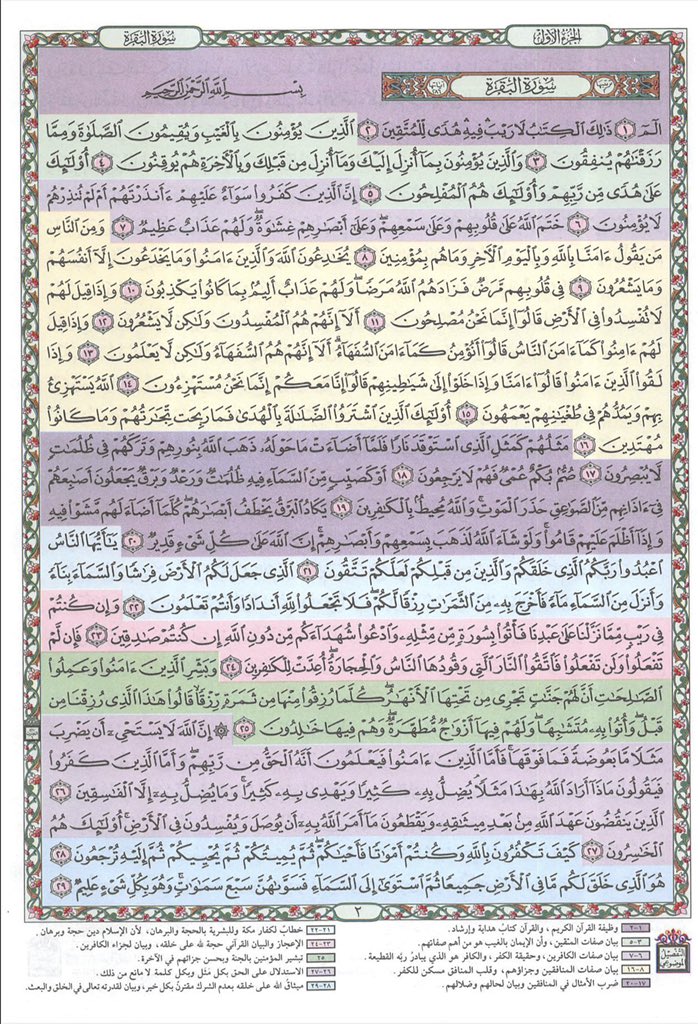 الجزء الأول
سورة البقرة
سورة البقرة
بسم الله الرحمن الرحيم
الٓمٓ ١ ذَٰلِكَ ٱلْكِتَٰبُ لَا رَيْبَ فِيهِ هُدًى لِّلْمُتَّقِينَ ٢ ٱلَّذِينَ يُؤْمِنُونَ بِٱلْغَيْبِ وَيُقِيمُونَ ٱلصَّلَوٰةَ وَمِمَّا
رَزَقْنَٰهُمْ يُنفِقُونَ ٣ وَٱلَّذِينَ يُؤْمِنُونَ بِمَآ أُنزِلَ إِلَيْكَ وَمَآ أُنزِلَ مِن قَبْلِكَ وَبِٱلْـَٔاخِرَةِ هُمْ يُوقِنُونَ ٤ أُو۟لَٰٓئِكَ
عَلَىٰ هُدًى مِّن رَّبِّهِمْ وَأُو۟لَٰٓئِكَ هُمُ ٱلْمُفْلِحُونَ ٥ إِنَّ ٱلَّذِينَ كَفَرُوا۟ سَوَآءٌ عَلَيْهِمْ ءَأَنذَرْتَهُمْ أَمْ لَمْ تُنذِرْهُمْ
لَا يُؤْمِنُونَ ٦ خَتَمَ ٱللَّهُ عَلَىٰ قُلُوبِهِمْ وَعَلَىٰ سَمْعِهِمْ وَعَلَىٰٓ أَبْصَٰرِهِمْ غِشَٰوَةٌ وَلَهُمْ عَذَابٌ عَظِيمٌ ٧ وَمِنَ ٱلنَّاسِ
مَن يَقُولُ ءَامَنَّا بِٱللَّهِ وَبِٱلْيَوْمِ ٱلْـَٔاخِرِ وَمَا هُم بِمُؤْمِنِينَ ٨ يُخَٰدِعُونَ ٱللَّهَ وَٱلَّذِينَ ءَامَنُوا۟ وَمَا يَخْدَعُونَ إِلَّآ أَنفُسَهُمْ
وَمَا يَشْعُرُونَ ٩ فِى قُلُوبِهِم مَّرَضٌ فَزَادَهُمُ ٱللَّهُ مَرَضًا وَلَهُمْ عَذَابٌ أَلِيمٌۢ بِمَا كَانُوا۟ يَكْذِبُونَ ١٠ وَإِذَا قِيلَ لَهُمْ
لَا تُفْسِدُوا۟ فِى ٱلْأَرْضِ قَالُوٓا۟ إِنَّمَا نَحْنُ مُصْلِحُونَ ١١ أَلَآ إِنَّهُمْ هُمُ ٱلْمُفْسِدُونَ وَلَٰكِن لَّا يَشْعُرُونَ ١٢ وَإِذَا قِيلَ
لَهُمْ ءَامِنُوا۟ كَمَآ ءَامَنَ ٱلنَّاسُ قَالُوٓا۟ أَنُؤْمِنُ كَمَآ ءَامَنَ ٱلسُّفَهَآءُ أَلَآ إِنَّهُمْ هُمُ ٱلسُّفَهَآءُ وَلَٰكِن لَّا يَعْلَمُونَ ١٣ وَإِذَا
لَقُوا۟ ٱلَّذِينَ ءَامَنُوا۟ قَالُوٓا۟ ءَامَنَّا وَإِذَا خَلَوْا۟ إِلَىٰ شَيَٰطِينِهِمْ قَالُوٓا۟ إِنَّا مَعَكُمْ إِنَّمَا نَحْنُ مُسْتَهْزِءُونَ ١٤ ٱللَّهُ يَسْتَهْزِئُ
بِهِمْ وَيَمُدُّهُمْ فِى طُغْيَٰنِهِمْ يَعْمَهُونَ ١٥ أُو۟لَٰٓئِكَ ٱلَّذِينَ ٱشْتَرَوُا۟ ٱلضَّلَٰلَةَ بِٱلْهُدَىٰ فَمَا رَبِحَت تِّجَٰرَتُهُمْ وَمَا كَانُوا۟
مُهْتَدِينَ ١٦ مَثَلُهُمْ كَمَثَلِ ٱلَّذِى ٱسْتَوْقَدَ نَارًا فَلَمَّآ أَضَآءَتْ مَا حَوْلَهُۥ ذَهَبَ ٱللَّهُ بِنُورِهِمْ وَتَرَكَهُمْ فِى ظُلُمَٰتٍ
لَّا يُبْصِرُونَ ١٧ صُمٌّۢ بُكْمٌ عُمْىٌ فَهُمْ لَا يَرْجِعُونَ ١٨ أَوْ كَصَيِّبٍ مِّنَ ٱلسَّمَآءِ فِيهِ ظُلُمَٰتٌ وَرَعْدٌ وَبَرْقٌ يَجْعَلُونَ أَصَٰبِعَهُمْ
فِىٓ ءَاذَانِهِم مِّنَ ٱلصَّوَٰعِقِ حَذَرَ ٱلْمَوْتِ وَٱللَّهُ مُحِيطٌۢ بِٱلْكَٰفِرِينَ ١٩ يَكَادُ ٱلْبَرْقُ يَخْطَفُ أَبْصَٰرَهُمْ كُلَّمَآ أَضَآءَ لَهُم مَّشَوْا۟ فِيهِ
وَإِذَآ أَظْلَمَ عَلَيْهِمْ قَامُوا۟ وَلَوْ شَآءَ ٱللَّهُ لَذَهَبَ بِسَمْعِهِمْ وَأَبْصَٰرِهِمْ إِنَّ ٱللَّهَ عَلَىٰ كُلِّ شَىْءٍ قَدِيرٌ ٢٠ يَٰٓأَيُّهَا ٱلنَّاسُ
ٱعْبُدُوا۟ رَبَّكُمُ ٱلَّذِى خَلَقَكُمْ وَٱلَّذِينَ مِن قَبْلِكُمْ لَعَلَّكُمْ تَتَّقُونَ ٢١ ٱلَّذِى جَعَلَ لَكُمُ ٱلْأَرْضَ فِرَٰشًا وَٱلسَّمَآءَ بِنَآءً
وَأَنزَلَ مِنَ ٱلسَّمَآءِ مَآءً فَأَخْرَجَ بِهِۦ مِنَ ٱلثَّمَرَٰتِ رِزْقًا لَّكُمْ فَلَا تَجْعَلُوا۟ لِلَّهِ أَندَادًا وَأَنتُمْ تَعْلَمُونَ ٢٢ وَإِن كُنتُمْ
فِى رَيْبٍ مِّمَّا نَزَّلْنَا عَلَىٰ عَبْدِنَا فَأْتُوا۟ بِسُورَةٍ مِّن مِّثْلِهِۦ وَٱدْعُوا۟ شُهَدَآءَكُم مِّن دُونِ ٱللَّهِ إِن كُنتُمْ صَٰدِقِينَ ٢٣ فَإِن لَّمْ
تَفْعَلُوا۟ وَلَن تَفْعَلُوا۟ فَٱتَّقُوا۟ ٱلنَّارَ ٱلَّتِى وَقُودُهَا ٱلنَّاسُ وَٱلْحِجَارَةُ أُعِدَّتْ لِلْكَٰفِرِينَ ٢٤ وَبَشِّرِ ٱلَّذِينَ ءَامَنُوا۟ وَعَمِلُوا۟
ٱلصَّٰلِحَٰتِ أَنَّ لَهُمْ جَنَّٰتٍ تَجْرِى مِن تَحْتِهَا ٱلْأَنْهَٰرُ كُلَّمَا رُزِقُوا۟ مِنْهَا مِن ثَمَرَةٍ رِّزْقًا قَالُوا۟ هَٰذَا ٱلَّذِى رُزِقْنَا مِن
قَبْلُ وَأُتُوا۟ بِهِۦ مُتَشَٰبِهًا وَلَهُمْ فِيهَآ أَزْوَٰجٌ مُّطَهَّرَةٌ وَهُمْ فِيهَا خَٰلِدُونَ ٢٥ ۞ إِنَّ ٱللَّهَ لَا يَسْتَحْىِۦٓ أَن يَضْرِبَ
مَثَلًا مَّا بَعُوضَةً فَمَا فَوْقَهَا فَأَمَّا ٱلَّذِينَ ءَامَنُوا۟ فَيَعْلَمُونَ أَنَّهُ ٱلْحَقُّ مِن رَّبِّهِمْ وَأَمَّا ٱلَّذِينَ كَفَرُوا۟
فَيَقُولُونَ مَاذَآ أَرَادَ ٱللَّهُ بِهَٰذَا مَثَلًا يُضِلُّ بِهِۦ كَثِيرًا وَيَهْدِى بِهِۦ كَثِيرًا وَمَا يُضِلُّ بِهِۦٓ إِلَّا ٱلْفَٰسِقِينَ ٢٦
ٱلَّذِينَ يَنقُضُونَ عَهْدَ ٱللَّهِ مِنۢ بَعْدِ مِيثَٰقِهِۦ وَيَقْطَعُونَ مَآ أَمَرَ ٱللَّهُ بِهِۦٓ أَن يُوصَلَ وَيُفْسِدُونَ فِى ٱلْأَرْضِ أُو۟لَٰٓئِكَ هُمُ
ٱلْخَٰسِرُونَ ٢٧ كَيْفَ تَكْفُرُونَ بِٱللَّهِ وَكُنتُمْ أَمْوَٰتًا فَأَحْيَٰكُمْ ثُمَّ يُمِيتُكُمْ ثُمَّ يُحْيِيكُمْ ثُمَّ إِلَيْهِ تُرْجَعُونَ ٢٨
هُوَ ٱلَّذِى خَلَقَ لَكُم مَّا فِى ٱلْأَرْضِ جَمِيعًا ثُمَّ ٱسْتَوَىٰٓ إِلَى ٱلسَّمَآءِ فَسَوَّىٰهُنَّ سَبْعَ سَمَٰوَٰتٍ وَهُوَ بِكُلِّ شَىْءٍ عَلِيمٌ ٢٩
٢
التفصيل الموضوعي
١-٢ وظيفة القرآن الكريم، والقرآن كتاب هداية وإرشاد.
٣-٥ بيان صفات المتقين، وأن الإيمان بالغيب هو من أهم صفاتهم.
٦-٧ بيان صفات الكافرين، وحقيقة الكفر، والكافر هو الذي يبادر ربه القطيعة.
٨-١٦ بيان صفات المنافقين وجزاؤهم، وقلب المنافق مسكن للكفر.
١٧-٢٠ ضرب الأمثال في المنافقين وبيان لحالهم وضلالهم.
٢١-٢٢ خطاب لكفار مكة وللبشرية بالحجة والبرهان، لأن الإسلام دين حجة وبرهان.
٢٣-٢٤ الإعجاز والبيان القرآني حجة لله على خلقه، وبيان لجزاء الكافرين.
٢٥ تبشير المؤمنين بالجنة وبحسن جزائهم في الآخرة.
٢٦-٢٧ الاستدلال على الحق بكل مثل وبكل كلمة لا مانع من ذلك.
٢٨-٢٩ ميثاق الله على خلقه بعدم الشرك مقترن بكل خبر، وبيان لقدرته تعالى في الخلق والبعث.